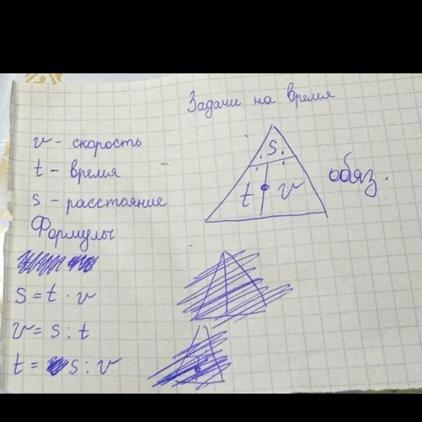 Задачи на время
v - скорость
t - время
s - расстояние
Формулы
S = t · v
v = s : t
t = s : v
S
t v
обяз.